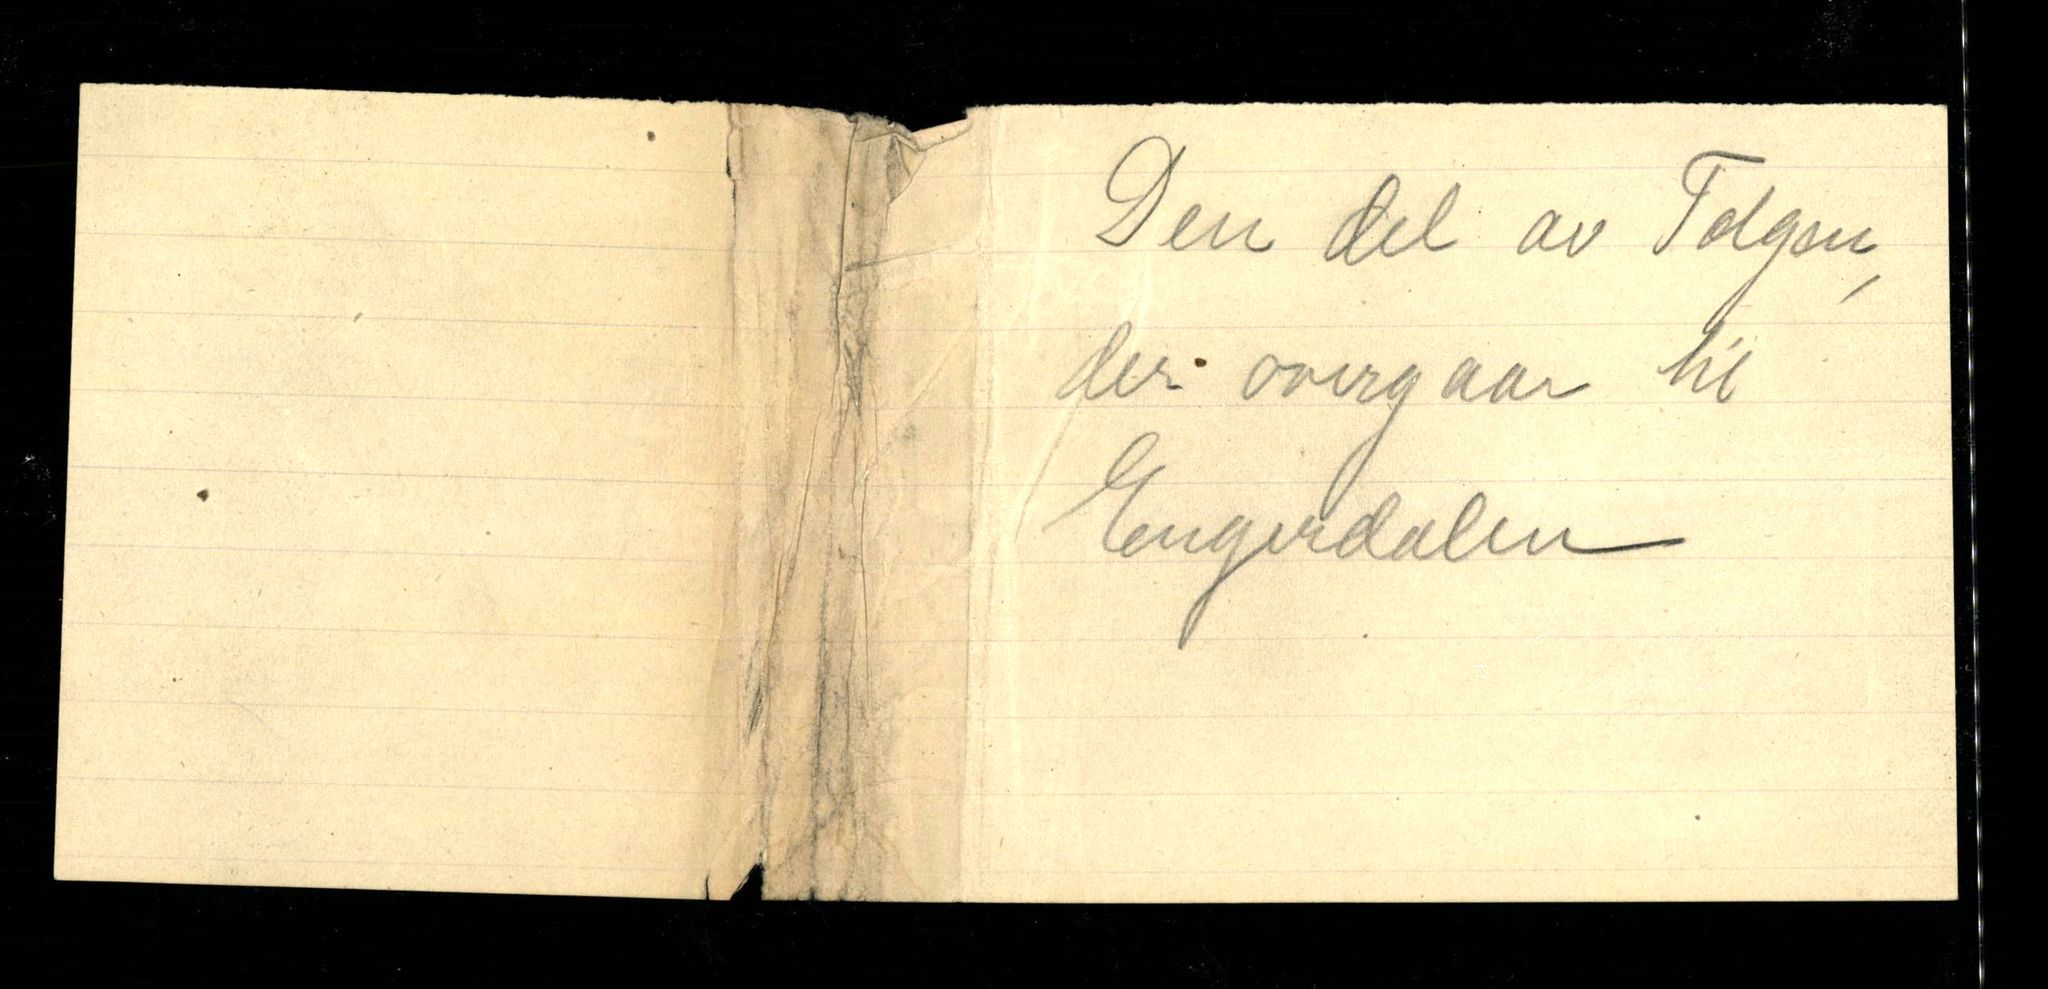 Den del av Tolgen,
der overgaar til
Engerdalen